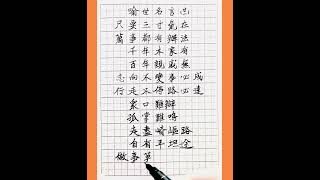 喻世名言也
只要三寸氣在
萬事都有辦法
千年木家有
百年親戚無
志向不變事必成
行走不停路必達
眾口難辯
孤掌難鳴
走盡崎嶇路
自有平坦途
做事第